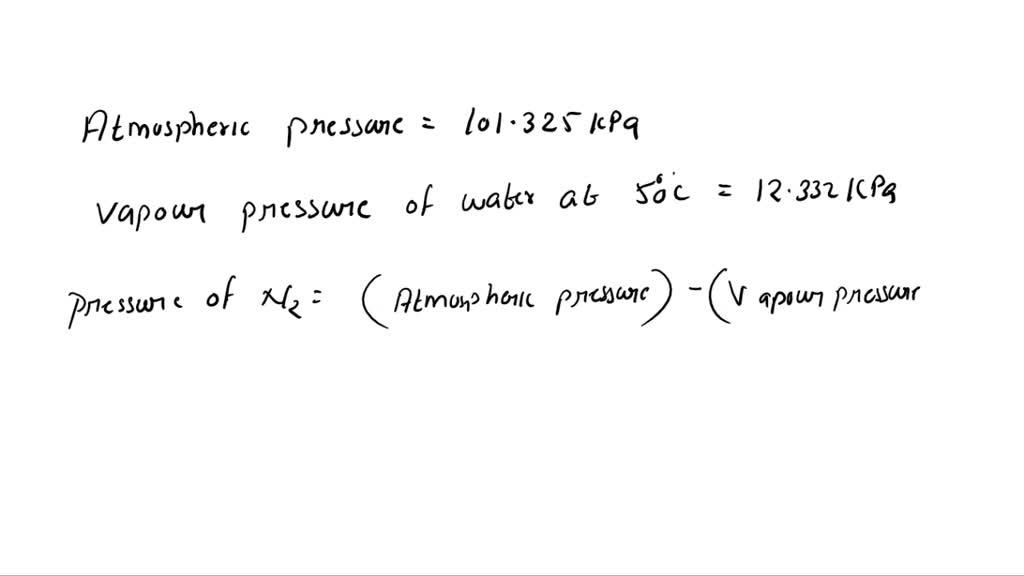 Atmospheric pressure = 101.325 kPa
vapour pressure of water at 50°C = 12.332 KPa
pressure of N2 = (Atmospheric pressure) - (Vapour pressure